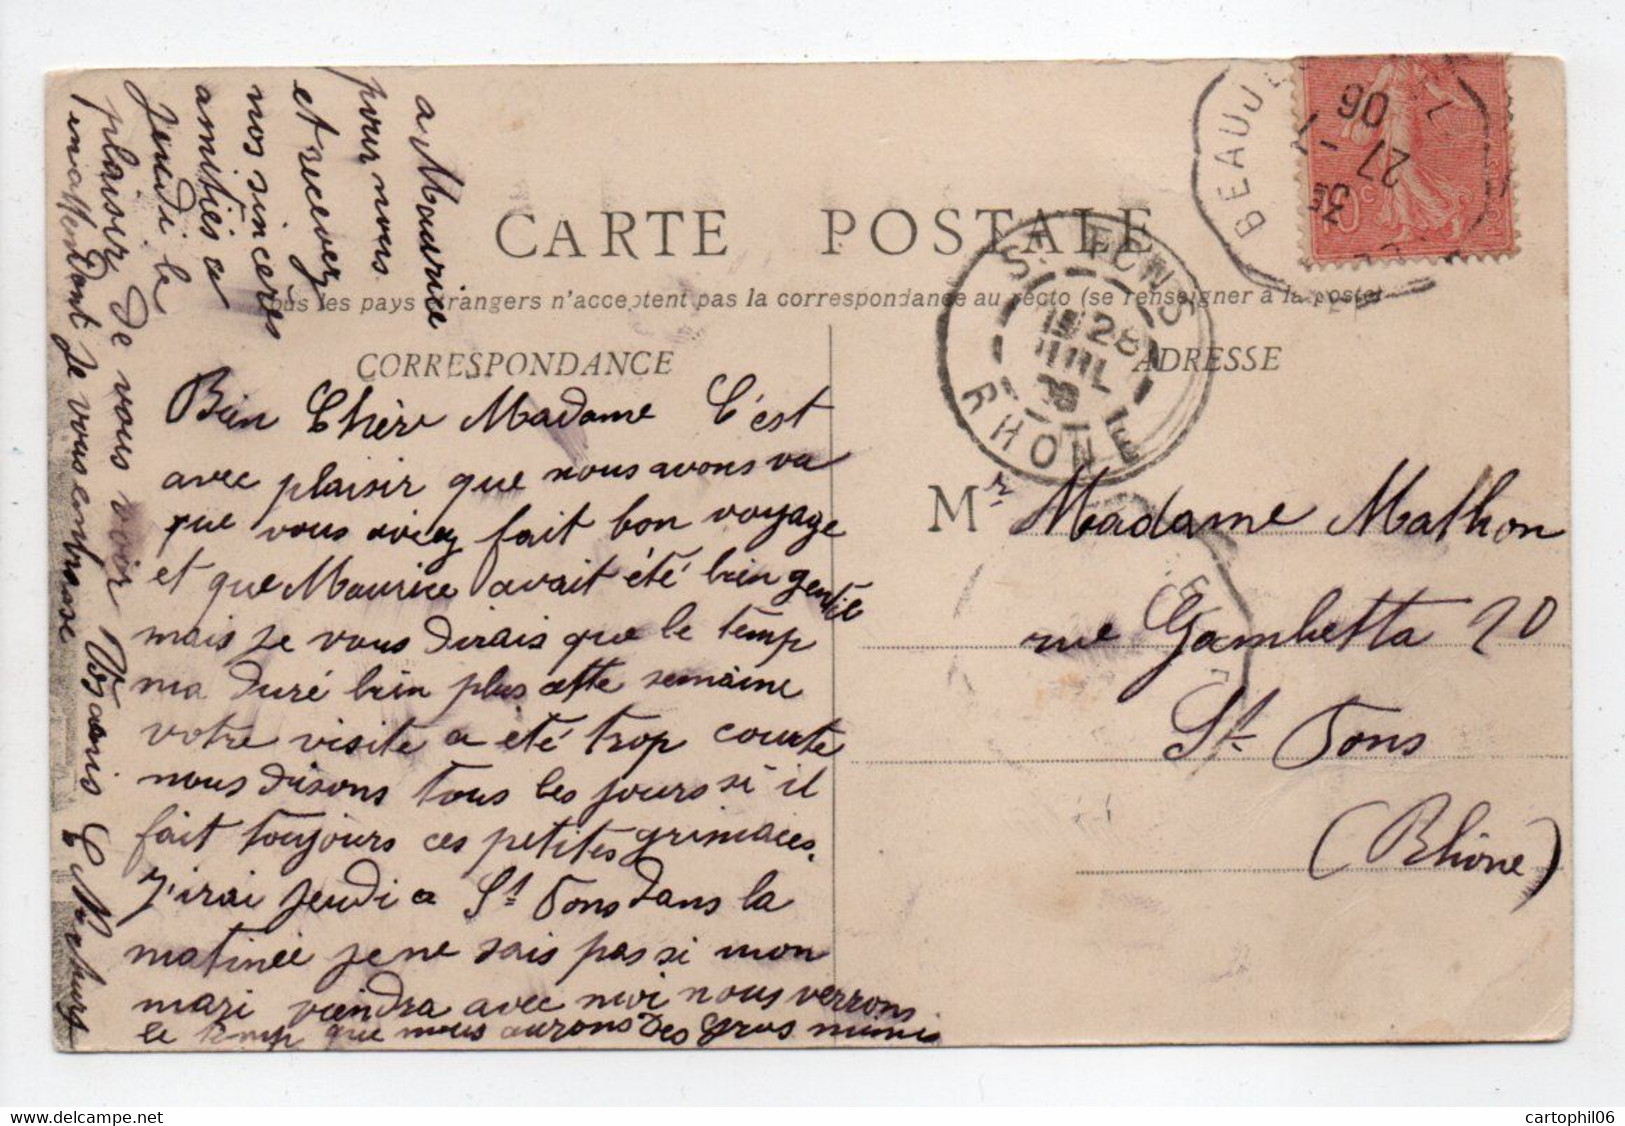 CARTE POSTALE
Tous les pays étrangers n'acceptent pas la correspondance au recto (se renseigner à la poste)
CORRESPONDANCE
ADRESSE
BEAUJE
3E
27 - 7
06
10c
POSTES
ST FONS
RHONE
28
JUIL
06
Bien Chère Madame C'est
avec plaisir que nous avons vu
que vous aviez fait bon voyage
et que Maurice avait été bien gentil
mais je vous dirais que le temp
ma duré bien plus cette semaine
votre visite a été trop courte
nous disons tous les jours si il
fait toujours ces petites grimaces.
J'irai jeudi a St Fons dans la
matinée je ne sais pas si mon
mari viendra avec moi nous verrons
le temp que nous aurons Des gros mimis
a Maurice
pour nous
et recevez
nos sincères
amitiés a
jeudi le
plaisir de vous voir Vos amis
en attendant je vous embrasse
Mr Madame Mathon
rue Gambetta 20
St Fons
(Rhône)
cartophil06